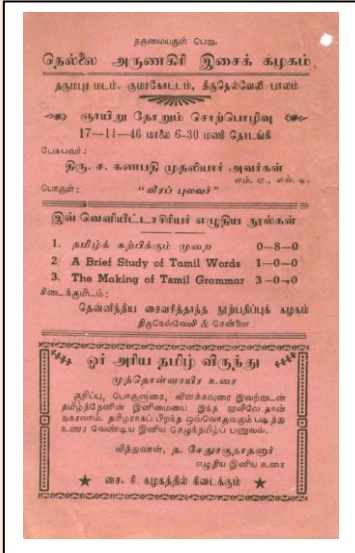 நகுமையருள் பெறு
நெல்லை அருணகிரி இசைக் கழகம்,
தருமபுர மடம். குமரகோட்டம், திருநெல்வேலி பாலம்
ஞாயிறு தோறும் சொற்பொழிவு
17-11-46 மாலை 6-30 மணி தொடங்கி
பேசுபவர் :
திரு. ச. கணபதி முதலியார் அவர்கள்
எம். ஏ., எல். டி.
பொருள் : "வீரப் புலவர்"
இவ் வெளியீட்டாசிரியர் எழுதிய நூல்கள்
1. தமிழ்க் கற்பிக்கும் முறை 0-8-0
2 A Brief Study of Tamil Words 1-0-0
3. The Making of Tamil Grammar 3-0-0
கிடைக்குமிடம் :
தென்னிந்திய சைவசித்தாந்த நூற்பதிப்புக் கழகம்
திருநெல்வேலி & சென்னை
ஓர் அரிய தமிழ் விருந்து
முத்தொள்ளாயிர உரை
குறிப்பு, பொருளுரை, விளக்கவுரை இவற்றுடன்
தமிழ்த்தேனின் இனிமையை இந்த நூலிலே தான்
நுகரலாம். தமிழராகப் பிறந்த ஒவ்வொருவரும் படித்து
உணர வேண்டிய இனிய செழுந்தமிழ்ப் பனுவல்.
வித்துவான், ந. சேதுரகுநாதனார்
எழுதிய இனிய உரை
★ சை. சி. கழகத்தில் கிடைக்கும் ★